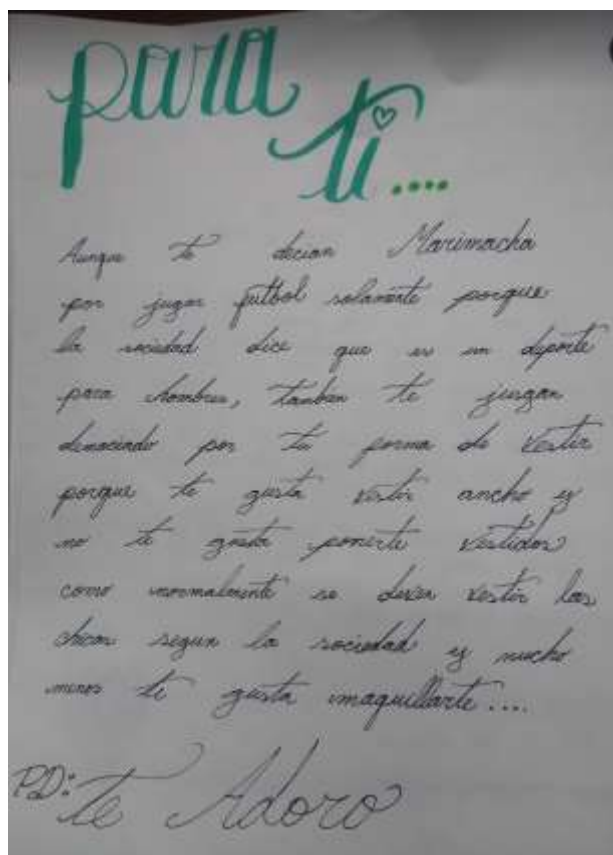 para
ti....
Aunque te decian Marimacha
por jugar futbol solamente porque
la sociedad dice que es un deporte
para hombres, tanbien te juzgan
demaciado por tu forma de vestir
porque te gusta vestir ancho y
no te gusta ponerte vestidos
como normalmente se deven vestir las
chicas segun la sociedad y mucho
menos te gusta maquillarte....
PD: te Adoro